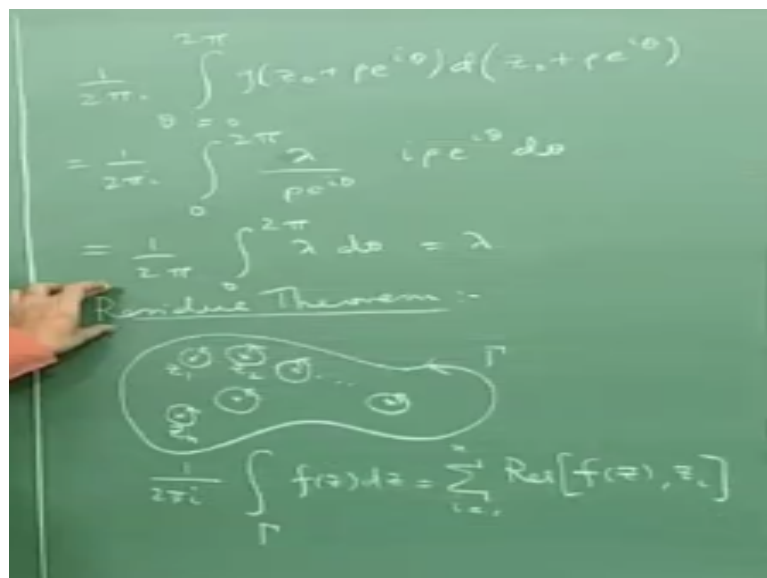 1/2πi ∫_{θ=0}^{2π} g(z₀ + ρe^{iθ}) d(z₀ + ρe^{iθ})
= 1/2πi ∫_0^{2π} λ/ρe^{iθ} iρe^{iθ} dθ
= 1/2π ∫_0^{2π} λ dθ = λ
Residue Theorem :-
Γ
z₁ z₂ ...
1/2πi ∫_Γ f(z)dz = Σ_{i=1}^{n} Res[f(z), z_i]